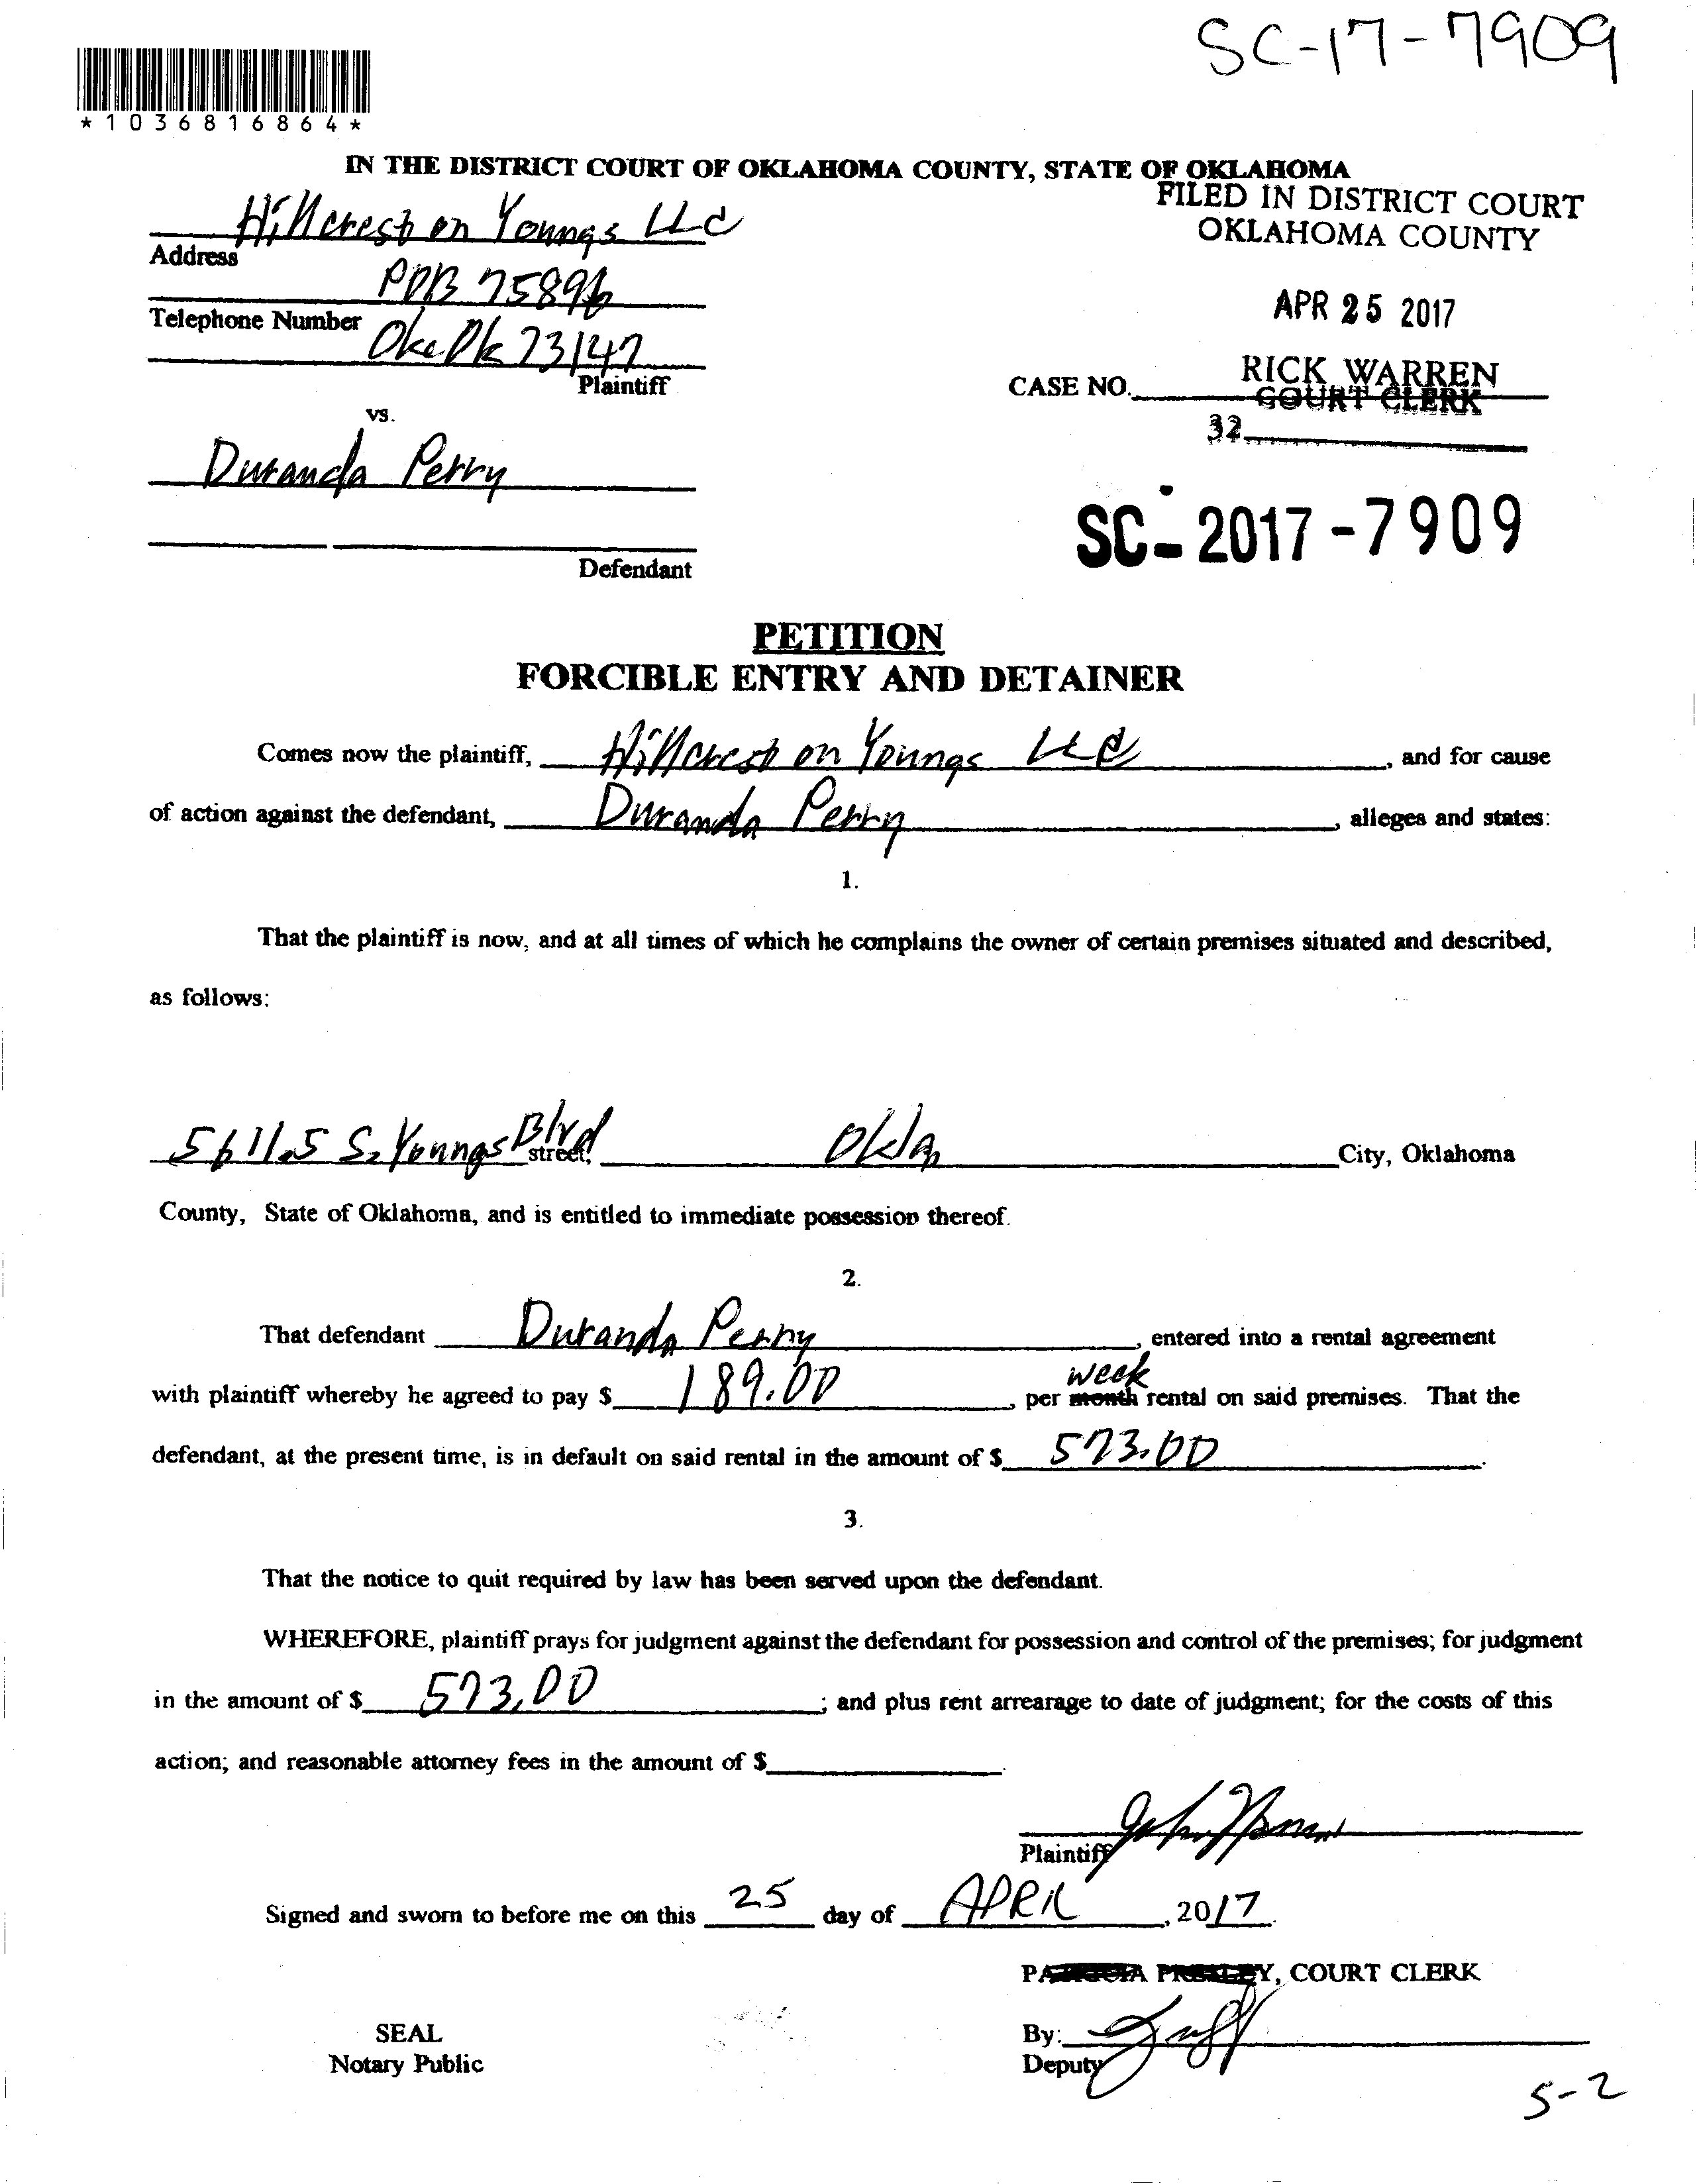 SC-17-7909
*1036816864*
IN THE DISTRICT COURT OF OKLAHOMA COUNTY, STATE OF OKLAHOMA
FILED IN DISTRICT COURT
OKLAHOMA COUNTY
Hillcrest on Youngs LLC
Address
POB 75896
APR 25 2017
Telephone Number
Okc Ok 73147
Plaintiff
RICK WARREN
COURT CLERK
CASE NO.
32
vs.
Duranda Perry
SC-2017-7909
Defendant
PETITION
FORCIBLE ENTRY AND DETAINER
Comes now the plaintiff, Hillcrest on Youngs LLC, and for cause
of action against the defendant, Duranda Perry, alleges and states:
1.
That the plaintiff is now, and at all times of which he complains the owner of certain premises situated and described,
as follows:
5611.5 S. Youngs Blvd street, Okla City, Oklahoma
County, State of Oklahoma, and is entitled to immediate possession thereof.
2.
That defendant Duranda Perry, entered into a rental agreement
with plaintiff whereby he agreed to pay $ 189.00, per month week rental on said premises. That the
defendant, at the present time, is in default on said rental in the amount of $ 573.00.
3.
That the notice to quit required by law has been served upon the defendant.
WHEREFORE, plaintiff prays for judgment against the defendant for possession and control of the premises; for judgment
in the amount of $ 573.00; and plus rent arrearage to date of judgment; for the costs of this
action; and reasonable attorney fees in the amount of $ .
Plaintiff
Signed and sworn to before me on this 25 day of APRIL, 2017.
COURT CLERK
SEAL
Notary Public
By:
Deputy
5-2